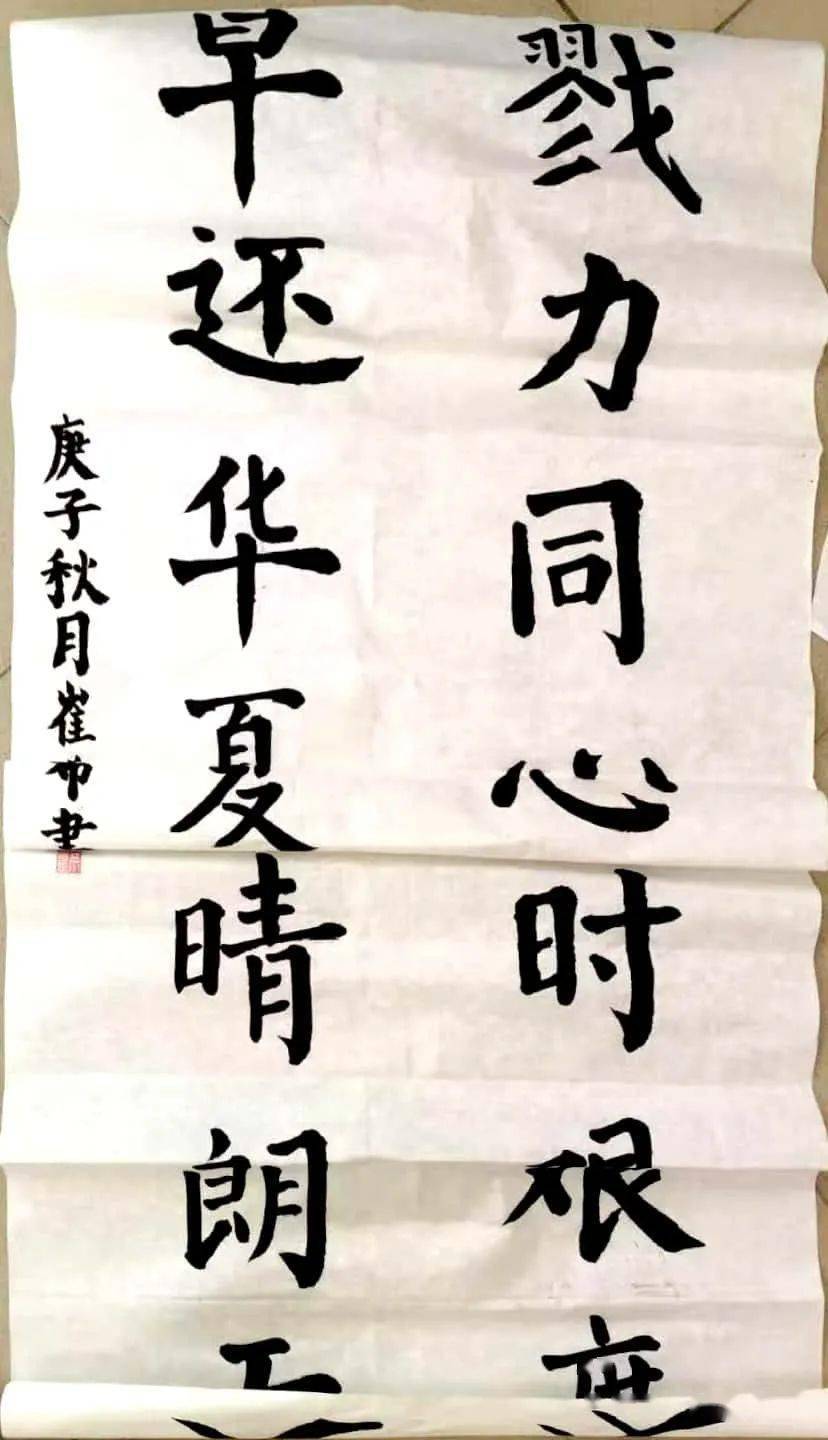 戮力同心时艰度
早还华夏晴朗
庚子秋月崔书